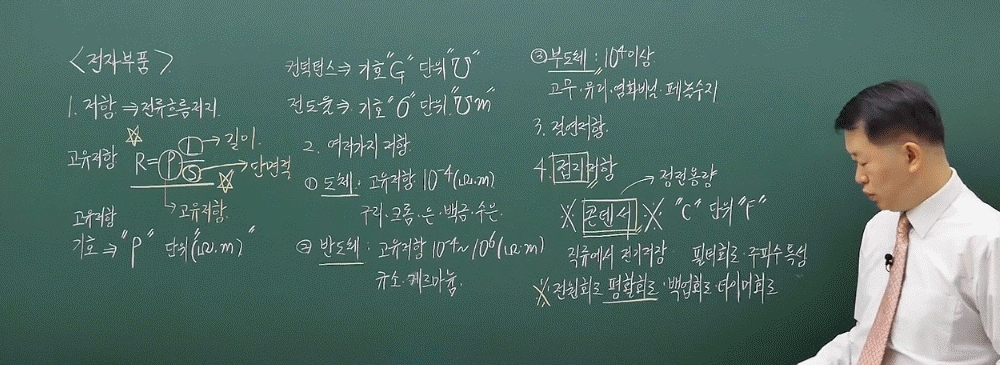 <전자부품>
1. 저항 ⇒ 전류흐름저지
고유저항 R=ρ L/S → 길이
→ 단면적
→ 고유저항
고유저항
기호 ⇒ "ρ" 단위 "(Ω·m)"
컨덕턴스 ⇒ 기호 "G" 단위 "℧"
전도율 ⇒ 기호 "σ" 단위 "℧m"
2. 여러가지 저항
① 도체 : 고유저항 10⁻⁴(Ω·m)
구리·크롬·은·백금·수은
② 반도체 : 고유저항 10⁻⁴~10⁶(Ω·m)
규소·게르마늄
③ 부도체 : 10⁴이상
고무·유리·염화비닐·페놀수지
3. 절연저항
4. 접지저항
→ 정전용량
※ 콘덴서 ※ "C" 단위 "F"
직류에서 전기저장 필터회로·주파수특성
※ 전원회로 평활회로·백업회로·타이머회로